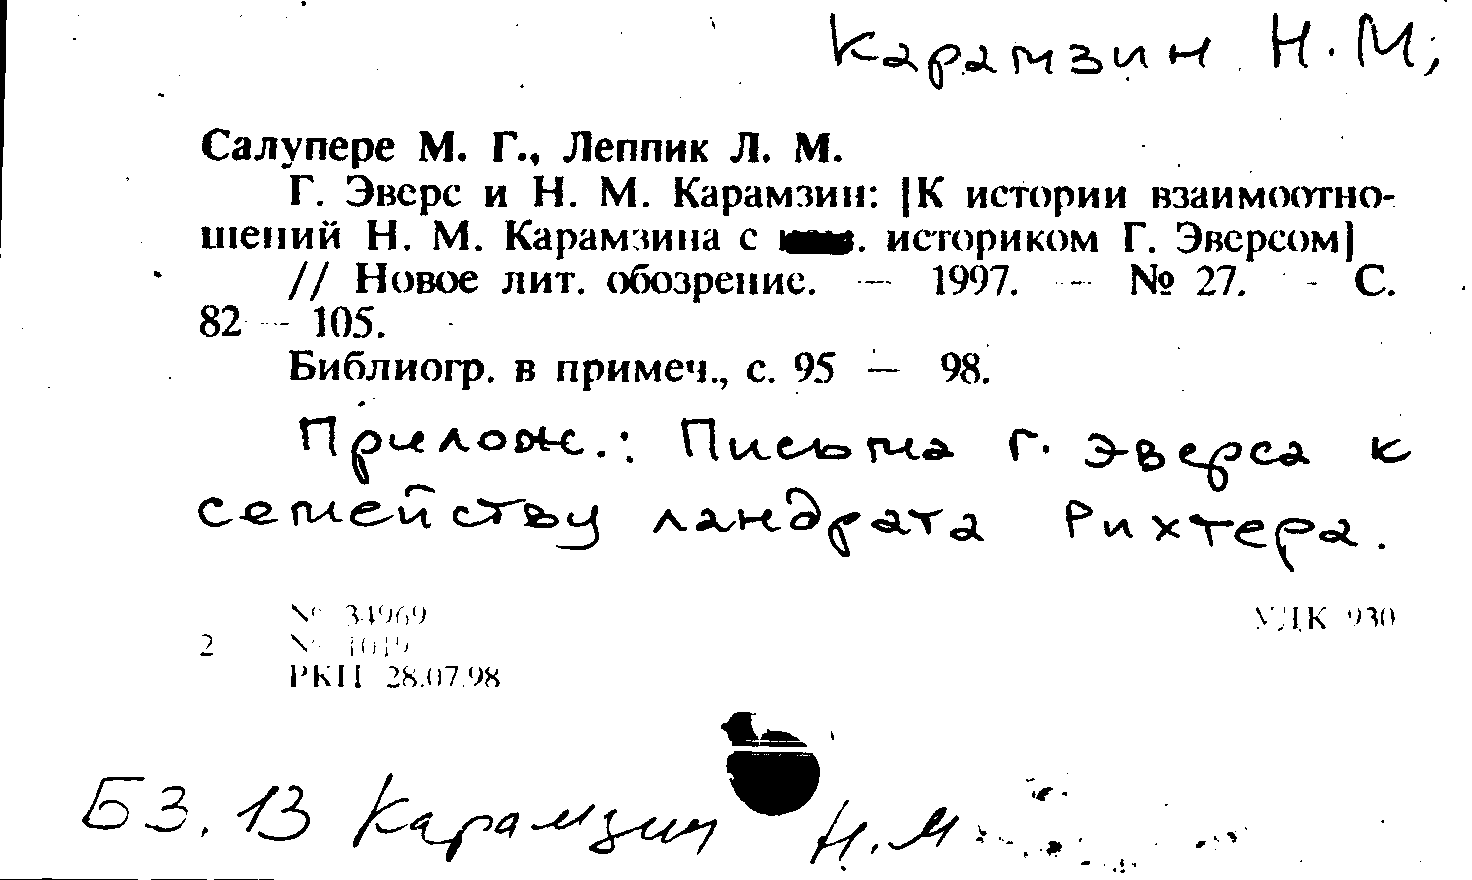 Карамзин Н. М,
Салупере М. Г., Леппик Л. М.
Г. Эверс и Н. М. Карамзин: [К истории взаимоотно-
шений Н. М. Карамзина с . историком Г. Эверсом]
// Новое лит. обозрение. — 1997. — № 27. - С.
82 — 105.
Библиогр. в примеч., с. 95 — 98.
Прилож.: Письма Г. Эверса к
семейству ландрата Рихтера.
№ 34969 УДК 930
2 № 1019
РКП 28.07.98
Б3.13 Карамзин Н.М